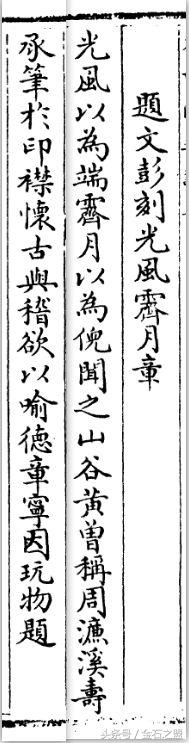 題文彭刻光風霽月章
光風以為端霽月以為倪聞之山谷黃曾稱周濂溪壽
承筆於印襟懷古與稽欲以喻德章寧因玩物題
头条号/金石之盟